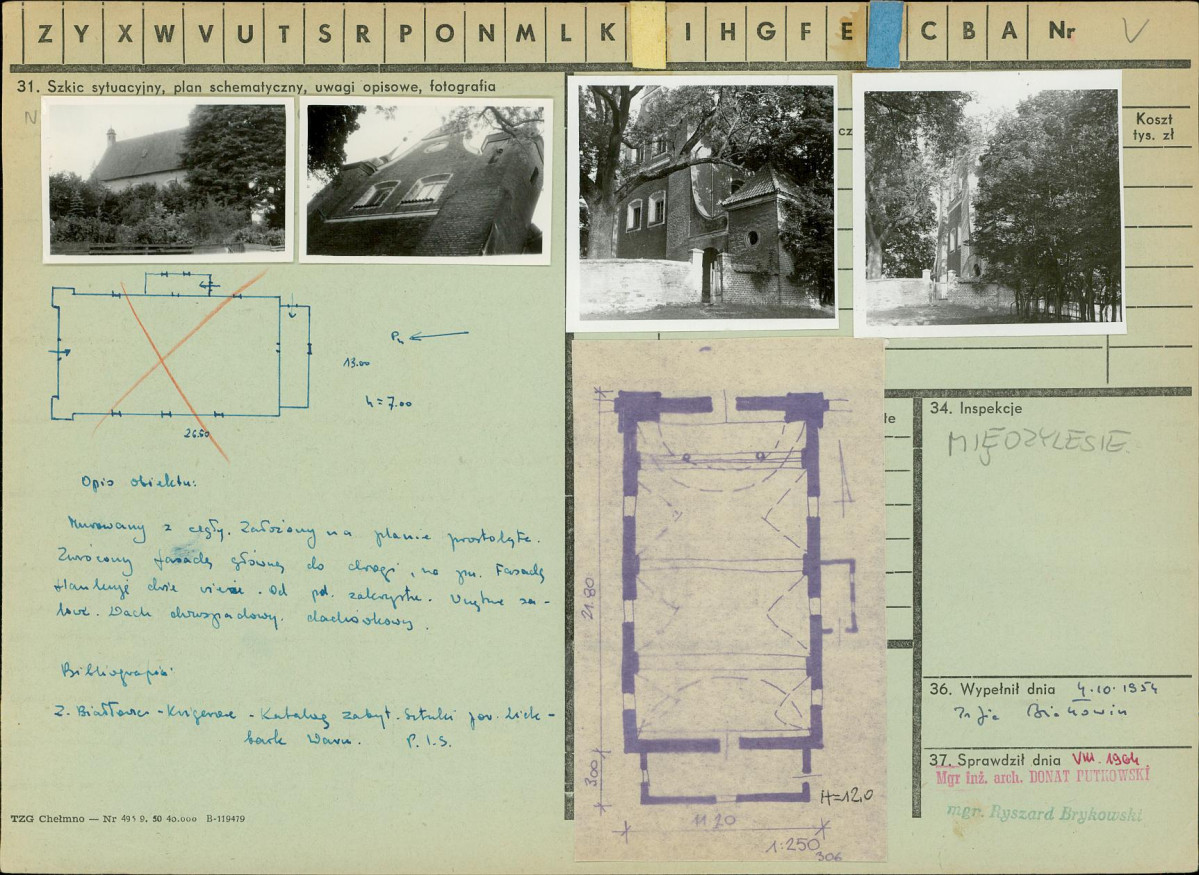 Z Y X W V U T S R P O N M L K I H G F E C B A Nr V
31. Szkic sytuacyjny, plan schematyczny, uwagi opisowe, fotografia
N
Koszt
tys. zł
Pn
13.00
h = 7.00
26.60
Opis obiektu:
Murowany z cegły. Założony na planie prostokąta.
Zwrócony fasadą główną do drogi, na pn. Fasadę
flankują dwie wieże. Od pd. zakrystia. Wnętrze sa-
lowe. Dach dwuspadowy, dachówkowy.
Bibliografia:
Z. Białłowicz-Krygierowa - Katalog zabyt. Sztuki pow. Lidz-
bark Warm. P.I.S.
TZG Chełmno — Nr 495 9. 50 40.000 B-119479
21.80
300
11 20
H=12,0
1:250
306
34. Inspekcje
MIĘDZYLESIE
36. Wypełnił dnia 4.10.1954
37. Sprawdził dnia VIII. 1964
Mgr inż. arch. DONAT PUTKOWSKI
mgr. Ryszard Brykowski